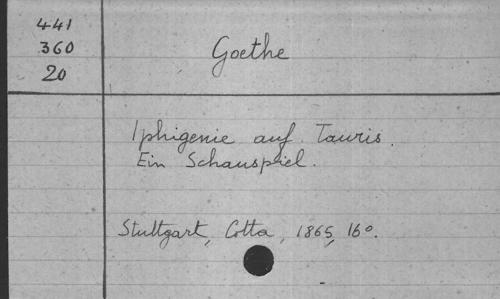 441
360
20
Goethe
Iphigenie auf Tauris.
Ein Schauspiel.
Stuttgart, Cotta, 1865, 16º.